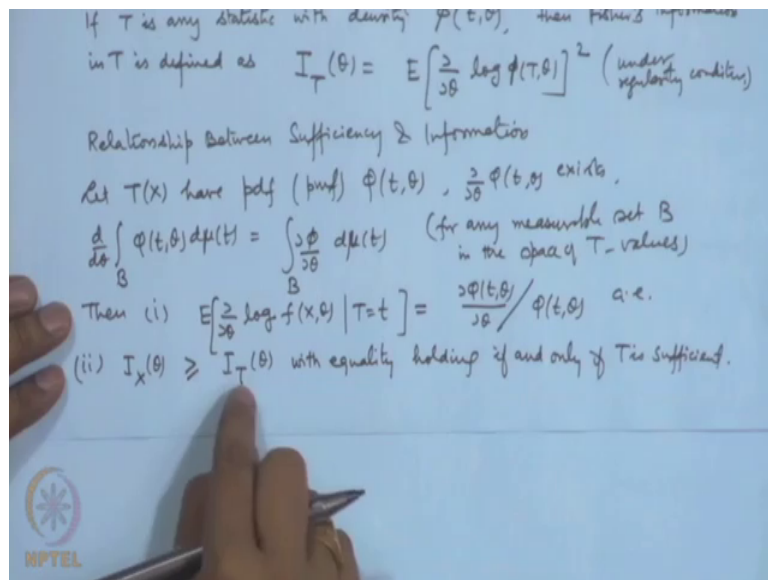 If T is any statistic with density φ(t,θ), then Fisher's information
in T is defined as I_T(θ) = E[∂/∂θ log φ(T,θ)]² (under regularity conditions)
Relationship Between Sufficiency & Information
Let T(X) have pdf (pmf) φ(t,θ), ∂/∂θ φ(t,θ) exists.
d/dθ ∫_B φ(t,θ) dμ(t) = ∫_B ∂φ/∂θ dμ(t) (for any measurable set B in the space of T-values)
Then (i) E[∂/∂θ log f(x,θ) | T=t] = ∂φ(t,θ)/∂θ / φ(t,θ) a.e.
(ii) I_X(θ) ≥ I_T(θ) with equality holding if and only if T is sufficient.
NPTEL